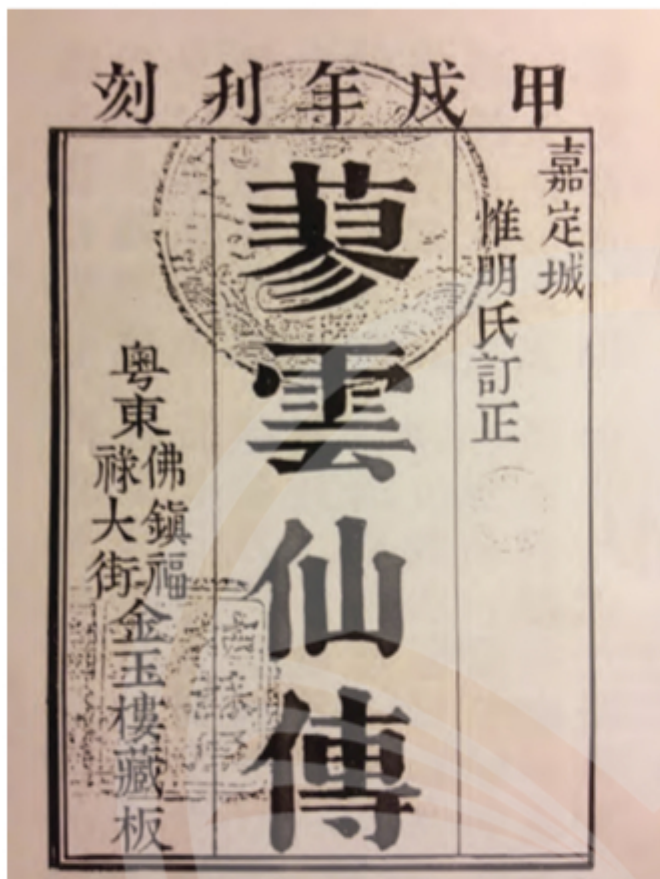 甲戌年刊刻
嘉定城
惟明氏訂正
蓼雲仙傳
粵東
佛鎮福
祿大街
金玉樓藏板